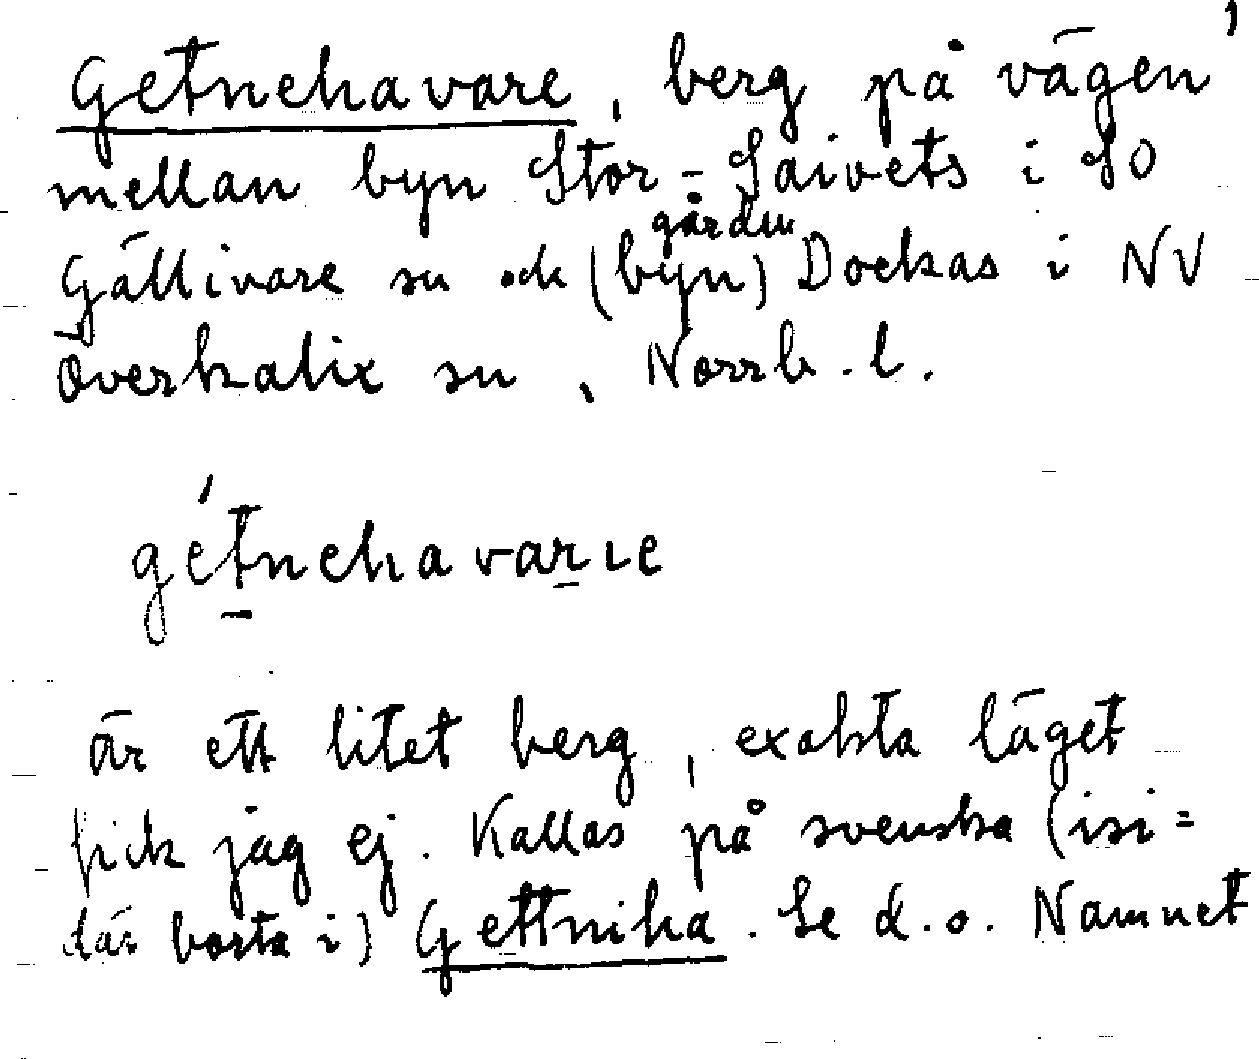 Getnehavare, berg på vägen
mellan byn Stor-Saivets i SO
gården
Gällivare sn och (byn) Dockas i NV
Överkalix sn, Norrb. l.
gétnehavarıe
är ett litet berg, exakta läget
fick jag ej. Kallas på svenska (isi=
där borta i) Gettniha. Se d.o. Namnet